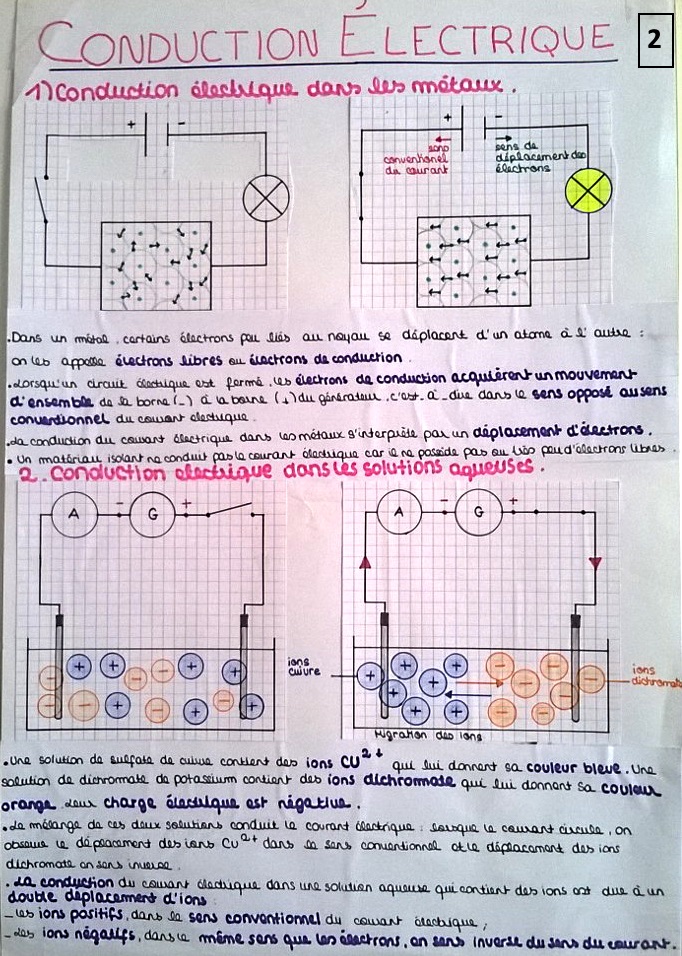 CONDUCTION ÉLECTRIQUE
2
1) Conduction électrique dans les métaux.
+ -
+ -
sens
conventionel
du courant
sens de
déplacement des
électrons
.Dans un métal, certains électrons peu liés au noyau se déplacent d'un atome à l'autre :
on les appelle électrons libres ou électrons de conduction.
.Lorsqu'un circuit électrique est fermé, les électrons de conduction acquièrent un mouvement
d'ensemble de la borne (-) à la borne (+) du générateur, c'est-à-dire dans le sens opposé au sens
conventionnel du courant électrique.
.La conduction du courant électrique dans les métaux s'interprète par un déplacement d'électrons.
. Un matériau isolant ne conduit pas le courant électrique car il ne possède pas ou très peu d'électrons libres.
2. Conduction electrique dans les solutions aqueuses.
A - G +
A - G +
+ + + + + + +
- - - - - - -
ions
cuivre
+ + + + + + +
- - - - - - -
ions
dichromate
Migration des ions
.Une solution de sulfate de cuivre contient des ions CU2+ qui lui donnent sa couleur bleue. Une
solution de dichromate de potassium contient des ions dichromate qui lui donnent sa couleur
orange. Leur charge électrique est négative.
.Le mélange de ces deux solutions conduit le courant électrique : lorsque le courant circule, on
observe le déplacement des ions Cu2+ dans le sens conventionnel et le déplacement des ions
dichromate en sens inverse.
. La conduction du courant électrique dans une solution aqueuse qui contient des ions est due à un
double déplacement d'ions :
_ les ions positifs, dans le sens conventionnel du courant électrique ;
_ les ions négatifs, dans le même sens que les électrons, en sens inverse du sens du courant.